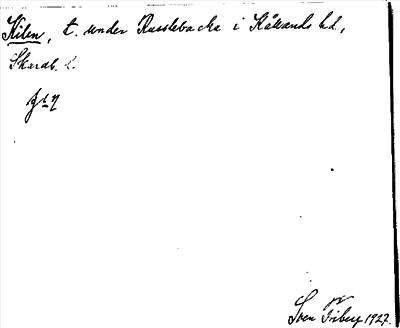 Kilen, t. under Russlebacka i Kållands hd,
Skarab. l.
Sven Friberg 1927.